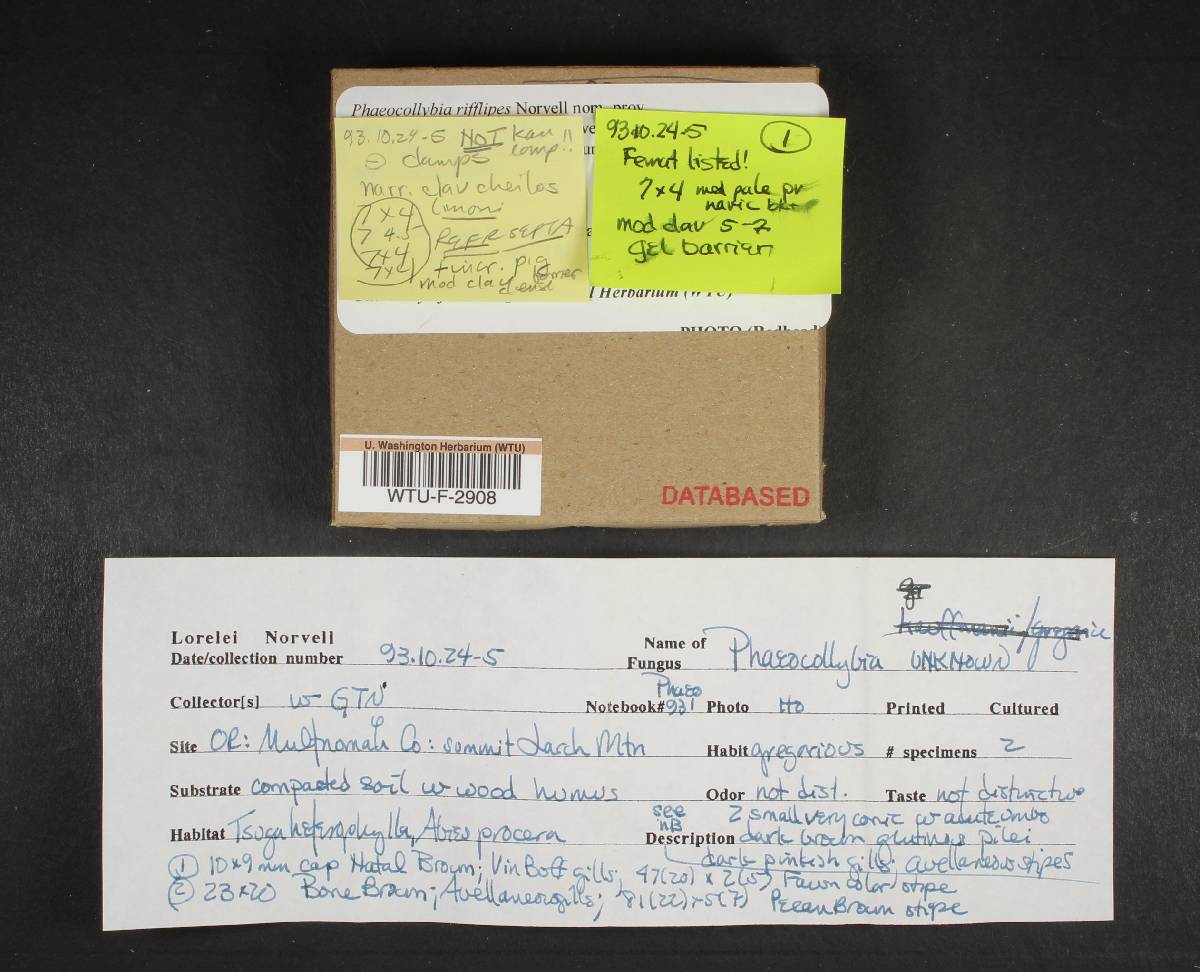 Phaeocollybia rifflipes Norvell nom. prov.
93.10.24-5 NOT kau!!
⊖ clamps comp!!
narr. clav cheilos
7x4 limoni
7 4.5 REFR SEPTA
7x4
7x4 + incr. pig
mod clav dense
93.10.24-5 1
Femut listed!
7x4 mod pale pr
navic
mod clav 5-7
gel barrier
l Herbarium (WTU)
PHOTO (Redhead)
U. Washington Herbarium (WTU)
WTU-F-2908
DATABASED
gr
kauffmanii/gregaria
Lorelei Norvell
Date/collection number 93.10.24-5
Name of Fungus Phaeocollybia UNKNOWN
Collector[s] w GTN
Notebook# Phaeo 931 Photo Ho Printed Cultured
Site OR: Multnomah Co: summit Larch Mtn Habit gregarious # specimens 2
Substrate compacted soil w wood humus Odor not dist. Taste not distinctive
Habitat Tsuga heterophylla, Abies procera
see NB
Description 2 small very conic w acute umbo
dark brown glutinous pilei
dark pinkish gills; avellaneous stipes
① 10x9 mm cap Natal Brown; Vin Buff gills; 47(20) x 2(.5) Fawn color stipe
② 23x20 Bone Brown; Avellaneous gills; 81(22)x5(7) Pecan Brown stipe